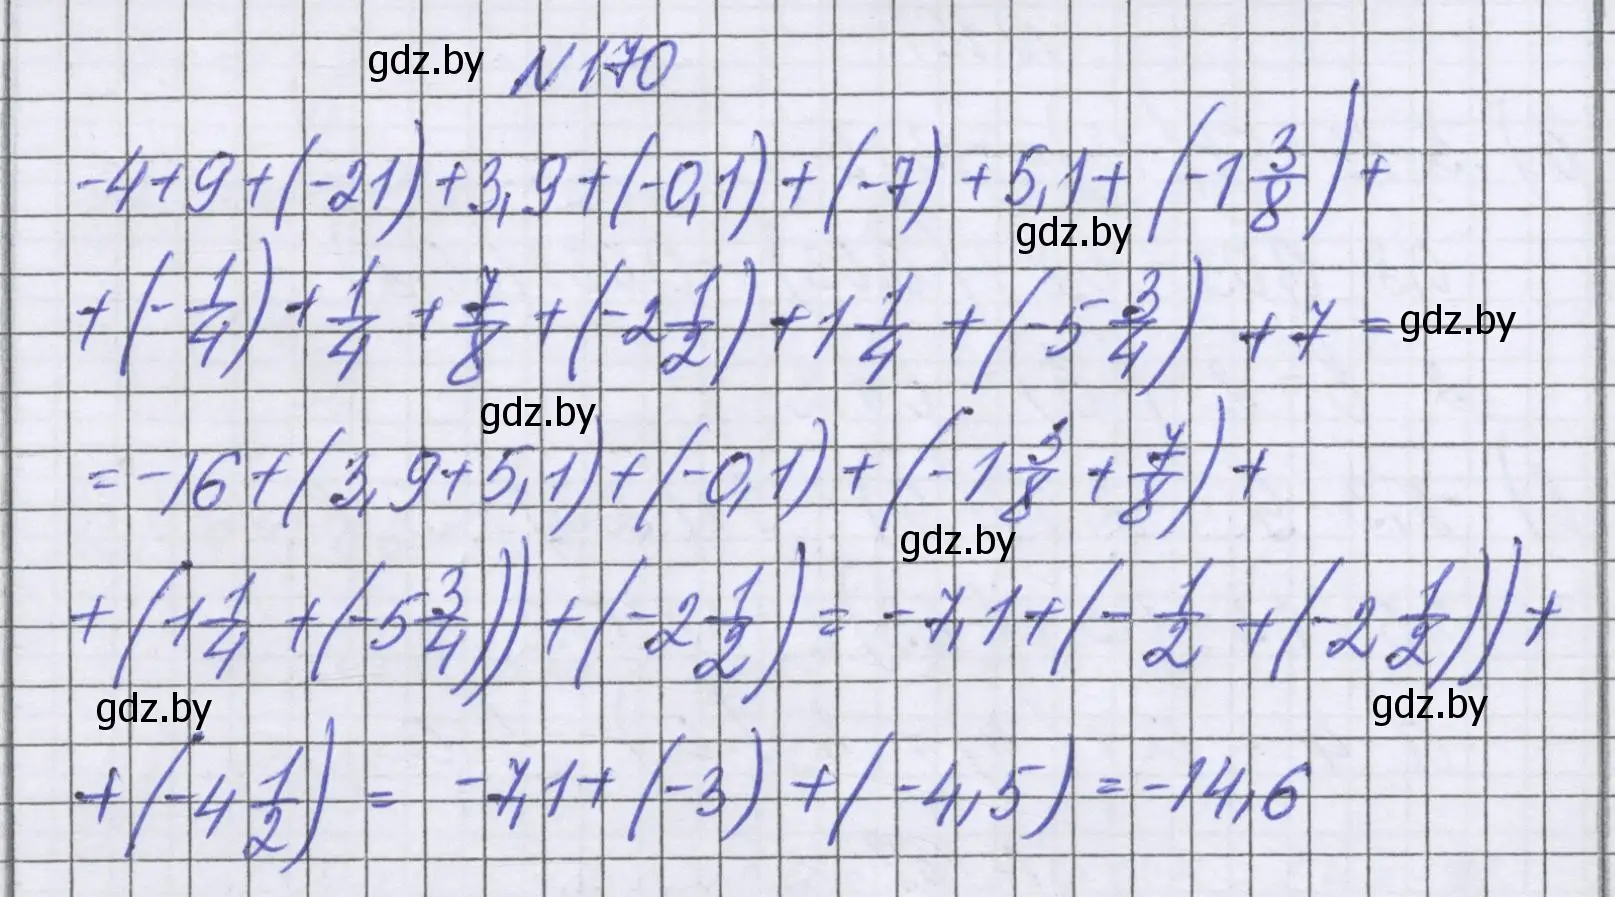 gdz.by N170
-4+9+(-21)+3,9+(-0,1)+(-7)+5,1+(-1 3/8)+
gdz.by
+(-1/4)+1/4+7/8+(-2 1/2)+1 1/4+(-5 3/4)+7= gdz.by
gdz.by
=-16+(3,9+5,1)+(-0,1)+(-1 3/8+7/8)+
gdz.by
+(1 1/4+(-5 3/4))+(-2 1/2)=-7,1+(-1/2+(-2 1/2))+
gdz.by gdz.by
+(-4 1/2)=-7,1+(-3)+(-4,5)=-14,6